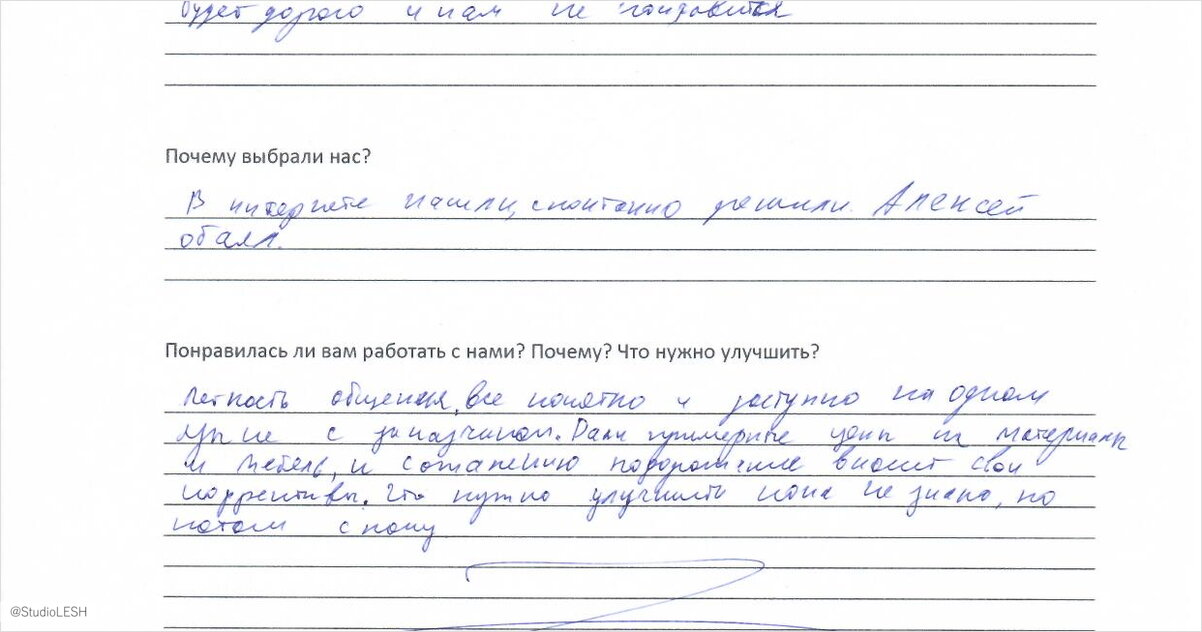 будет дорого и нам не понравится
Почему выбрали нас?
В интернете нашли, спонтанно решили. Алексей
обаял.
Понравилась ли вам работать с нами? Почему? Что нужно улучшить?
Легкость общения, все понятно и доступно на одном
языке с заказчиком. Дали примерные цены на материалы
и мебель, к сожалению подорожание вносит свои
коррективы. Что нужно улучшить пока не знаю, но
потом скажу
@StudioLESH